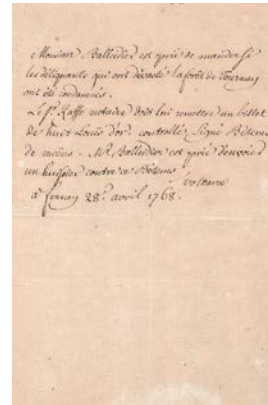 Monsieur Balleidier est prié de mander si
les déliquants qui ont dévasté la forêt de Tournay
ont été condamnés.
Le Sr. Raffo notaire doit lui remettre un billet
de huit Louis d'or controllé, Signé Bétems
de . Mr. Balleidier est prié d'envoier
un huissier contre ce Bétems
voltaire
a fernex 28e. avril 1768.